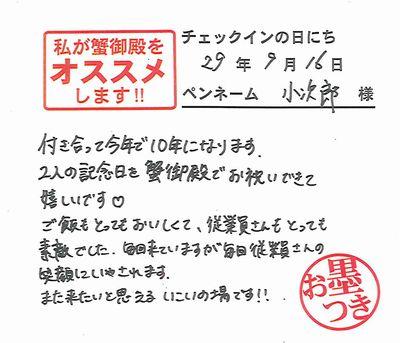 私が蟹御殿を
オススメ
します!!
チェックインの日にち
29年9月16日
ペンネーム 小次郎 様
付き合って今年で10年になります.
2人の記念日を蟹御殿でお祝いできて
嬉しいです♡
ご飯もとってもおいしくて、従業員さんもとっても
素敵でした. 毎回来ていますが毎回従業員さんの
笑顔にいやされます.
また来たいと思えるいこいの場です!!
お墨つき